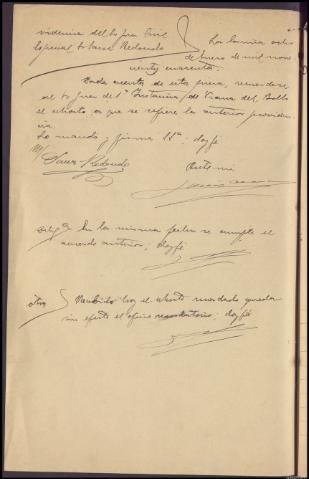 videncia del Sr Juez Civil
Especial Sr Saura Redondo
La Coruña ocho
de Enero de mil nove
cientos cuarenta.
Dada cuenta de esta pieza, recuerdese
al Sr Juez de 1ª Instancia de Viana del Bollo
el exhorto a que se refiere la anterior providen
cia.
Lo mandó y firma SSª. doy fé
M/
Saura Redondo
Ante mi
Dilig.ª En la misma fecha se cumple el
acuerdo anterior; doy fé
otra Recibido hoy el exhorto recordado queda
sin efecto el oficio recordatorio; doy fé